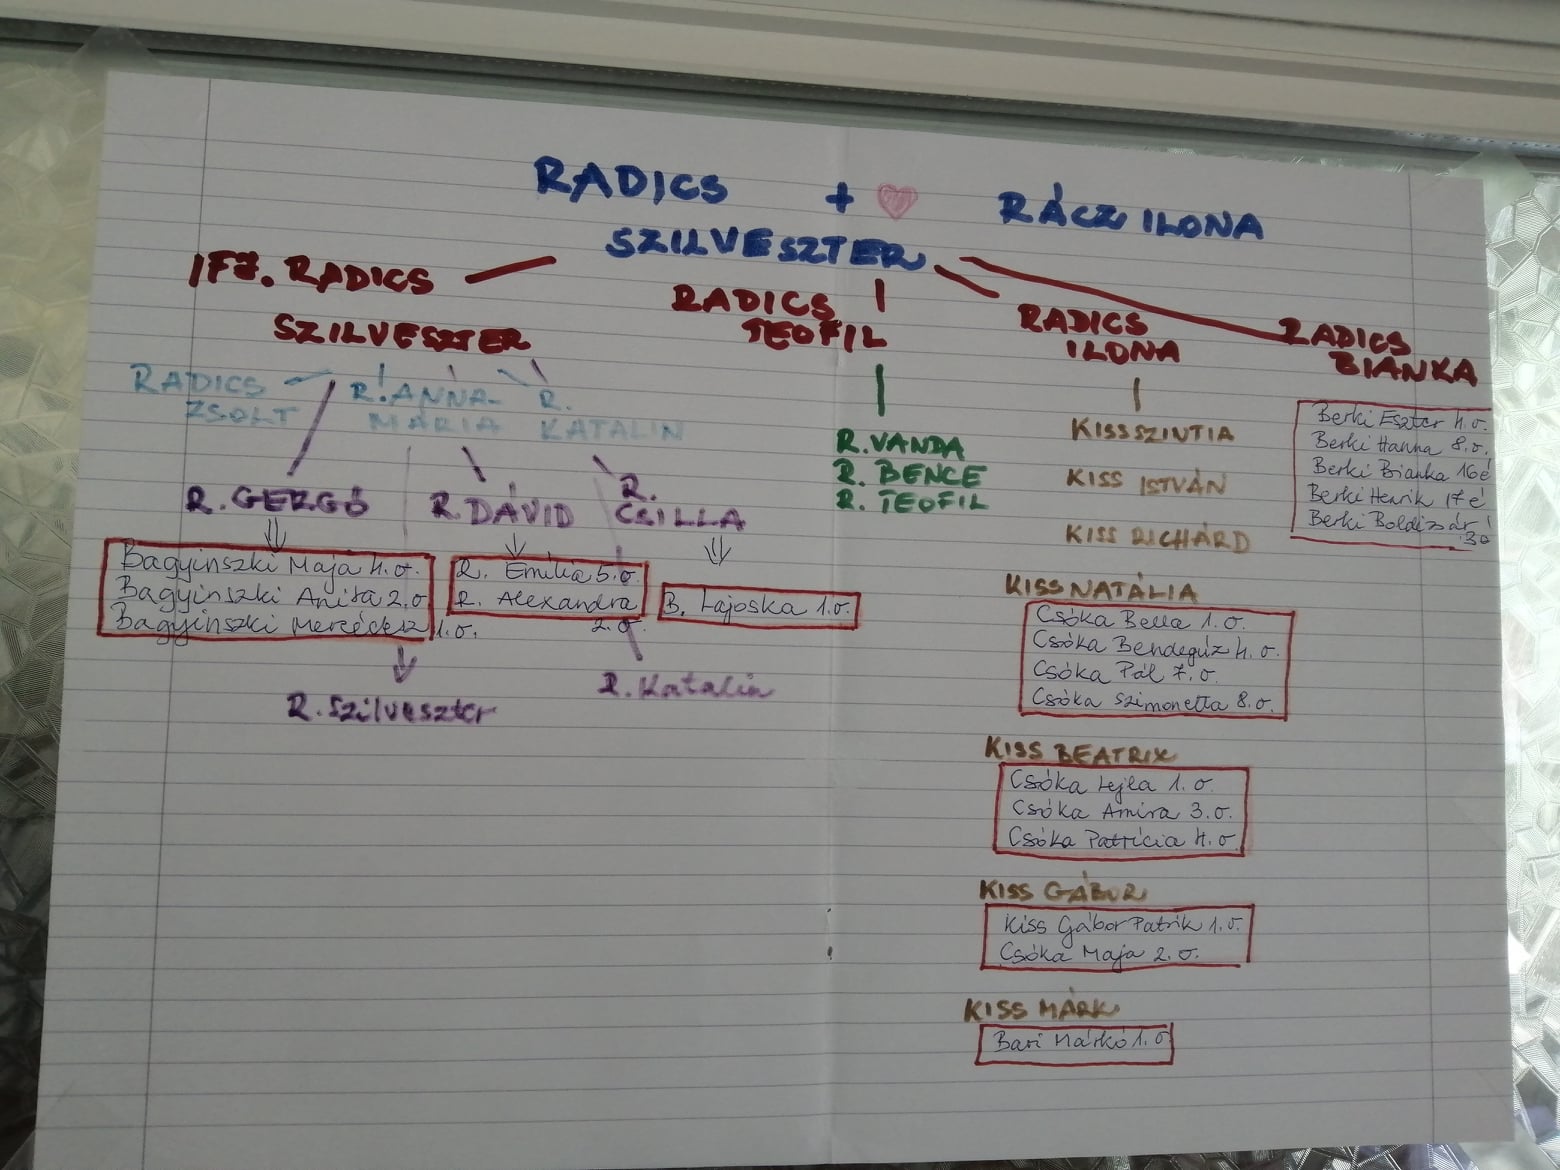 RADICS + RÁCZ ILONA
SZILVESZTER
IFJ. RADICS
SZILVESZTER
RADICS
TEOFIL
RADICS
ILONA
RADICS
BIANKA
RADICS
ZSOLT
R. ANNA-
MÁRIA
R.
KATALIN
R. GERGŐ
R. DÁVID
R.
CSILLA
Bagyinszki Maja 4. o.
Bagyinszki Anita 2. o
Bagyinszki Mercédesz 1. o.
R. Emília 5. o.
R. Alexandra
2. o.
B. Lajoska 1. o.
R. Szilveszter
R. Katalin
R. VANDA
R. BENCE
R. TEOFIL
KISS SZINTIA
KISS ISTVÁN
KISS RICHÁRD
KISS NATÁLIA
Csóka Bella 1. o.
Csóka Bendegúz 4. o.
Csóka Pál 7. o.
Csóka Szimonetta 8. o.
KISS BEATRIX
Csóka Lejla 1. o.
Csóka Amira 3. o.
Csóka Patrícia 4. o.
KISS GÁBOR
Kiss Gábor Patrik 1. o.
Csóka Maja 2. o.
KISS MÁRK
Bari Márkó 1. o
Berki Eszter 4. o.
Berki Hanna 8. o.
Berki Bianka 16 é
Berki Henrik 17 é
Berki Boldizsár
3 o